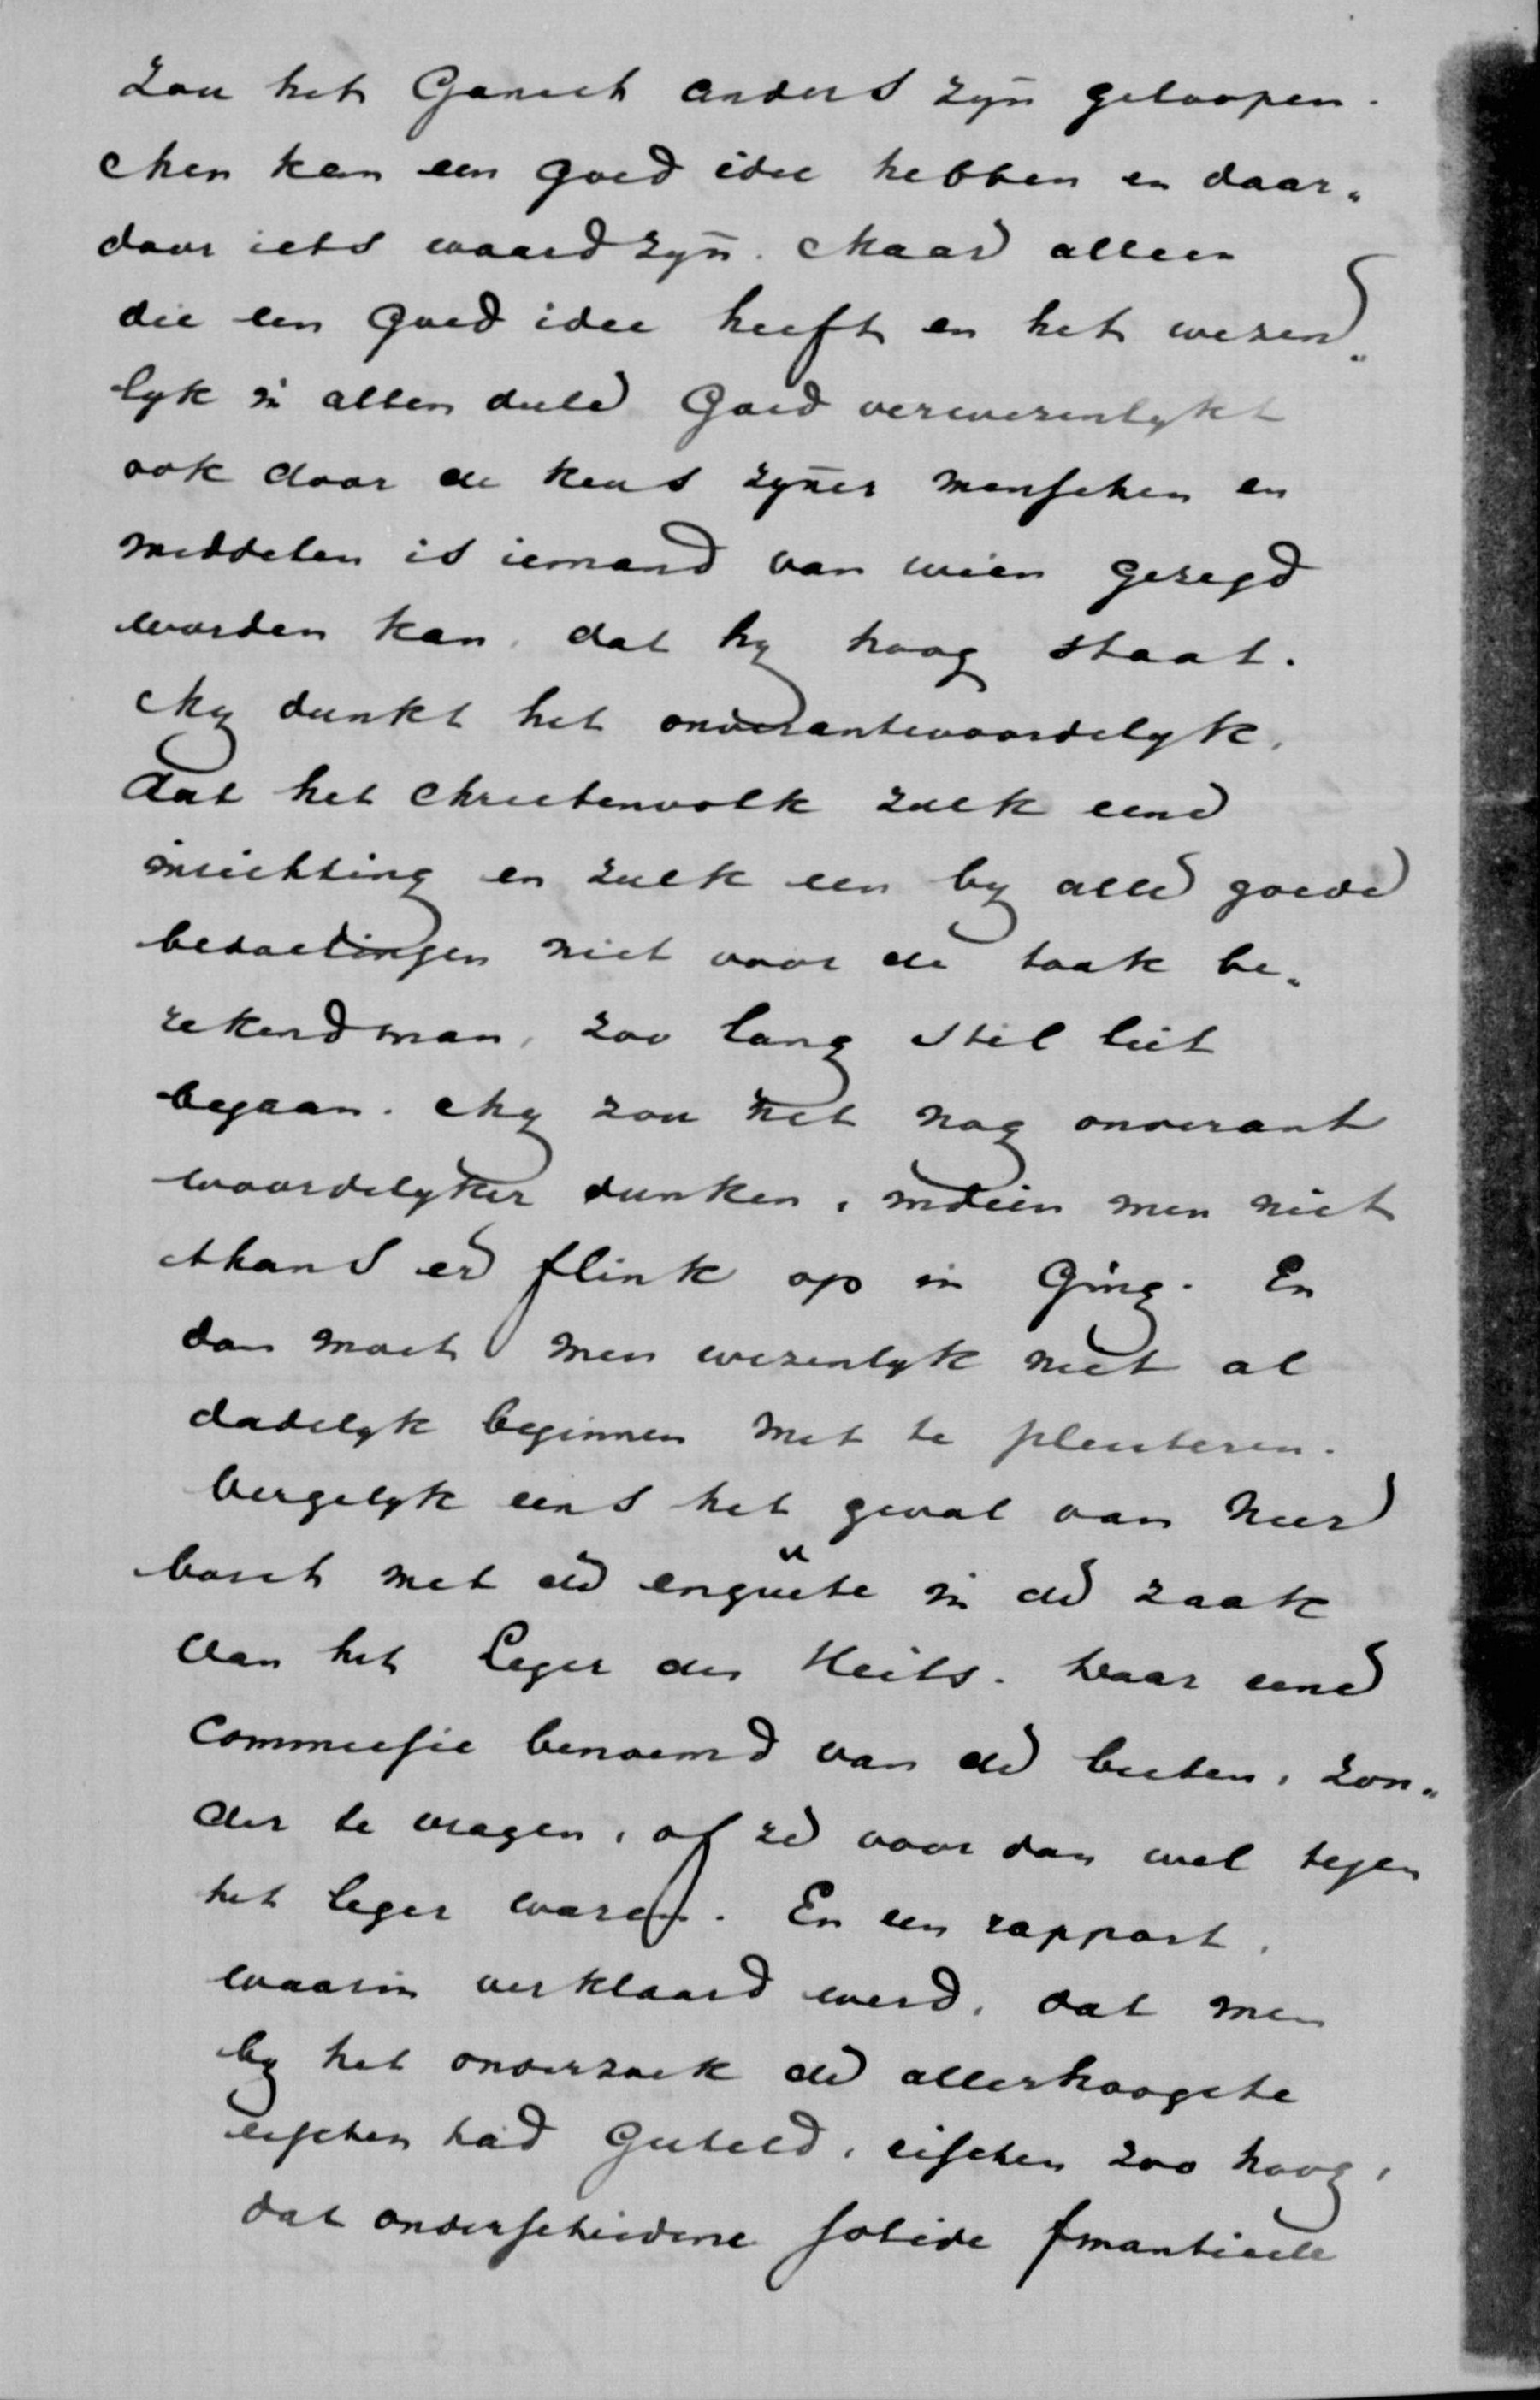 zou het Gansch anders zyn geloopen.
Men kan een goed idee hebben en daar„
door iets waard zyn. Maar alleen
die een goed idee heeft en het wezen„
lyk in allen deele Goed verwezenlykt
ook door de keus zyner menschen en
middelen is iemand van wien gezegd
worden kan, dat hy hoog staat.
My dunkt het onverantwoordelyk,
dat het Christenvolk zulk eene
inrichting en zulk een by alle goede
bedoelingen niet voor de taak be„
rekend man, zoo lang stil liet
begaan. My zou het nog onverant
woordelyker dunken, indien men niet
thans er flink op in Ging. En
dan moet men wezenlyk niet al
dadelyk beginnen met te pleisteren.
Vergelyk eens het geval van Neer
bosch met de enquête in de zaak
van het Leger des Heils. Daar eene
Commissie benoemd van de besten, zon„
der te vragen, of ze voor dan wel tegen
het leger waren. En een rapport,
waarin verklaard werd, dat men
by het onderzoek de allerhoogste
eischen had Gesteld, eischen zoo hoog,
dat onderscheidene solide finantieele